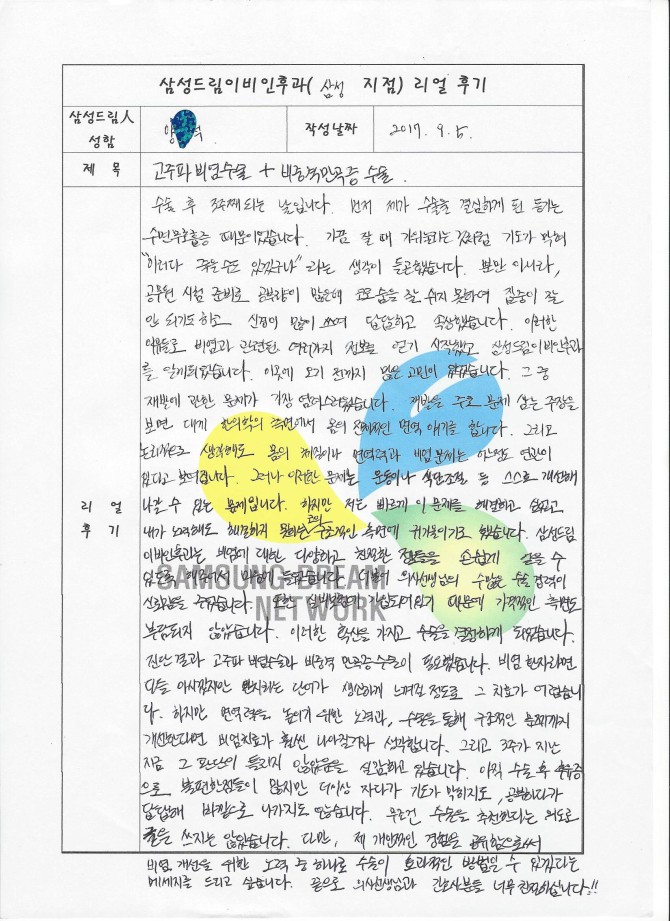 삼성드림이비인후과( 삼성 지점) 리얼 후기
삼성드림人 성함
양 작성날짜 2017. 9. 5.
제 목 고주파비염수술 + 비중격만곡증 수술.
리 얼 후 기
수술 후 3주째 되는 날입니다. 먼저 제가 수술을 결심하게 된 동기는
수면무호흡증 때문이었습니다. 가끔 잘 때 가위눌리는 것처럼 기도가 막혀
"이러다 죽을수도 있겠구나" 라는 생각이 들곤했습니다. 뿐만 아니라,
공무원 시험 준비로 공부량이 많은데 코로 숨을 잘 쉬지 못하여 집중이 잘
안 되기도 하고 신경이 많이 쓰여 답답하고 속상했습니다. 이러한
이유들로 비염과 관련된 여러가지 정보를 얻기 시작했고 삼성드림이비인후과
를 알게되었습니다. 이곳에 오기 전까지 많은 고민이 있었습니다. 그 중
재발에 관한 문제가 가장 염려스러웠습니다. 재발을 주로 문제 삼는 주장을
보면 대게 한의학의 측면에서 몸의 전체적인 면역 얘기를 합니다. 그리고
논리적으로 생각해도 몸의 체질이나 면역력과 비염 문제는 아무래도 연관이
있다고 보여집니다. 그러나 이러한 문제는 운동이나 식단조절 등 스스로 개선해
나갈 수 있는 문제입니다. 하지만 저는 빠르게 이 문제를 해결하고 싶었고
내가 노력해도 해결하지 못하는 코의 구조적인 측면에 귀기울이기로 했습니다. 삼성드림
이비인후과는 비염에 대한 다양하고 친절한 정보들을 손쉽게 얻을 수
있도록 해주어서 마음에 들었습니다. 의사선생님의 수많은 수술 경력이
신뢰감을 주었습니다. 또한 실비보험가 가입되어있기 때문에 가격적인 측면도
부담되지 않았습니다. 이러한 확신을 가지고 수술을 결정하게 되었습니다.
진단 결과 고주파 비염수술과 비중격 만곡증수술이 필요했습니다. 비염 환자라면
다들 아시겠지만 완치라는 단어가 생소하게 느껴질 정도로 그 치료가 어렵습니
다. 하지만 면역력을 높이기 위한 노력과, 수술을 통해 구조적인 문제까지
개선한다면 비염치료가 훨씬 나아질거라 생각합니다. 그리고 3주가 지난
지금 그 판단이 틀리지 않았음을 실감하고 있습니다. 아직 수술 후 휴유증
으로 불편한점들이 있지만 더이상 자다가 기도가 막히지도, 공부하다가
답답해 바깥으로 나가지도 않습니다. 무조건 수술을 추천한다는 의도로
글을 쓰지는 않았습니다. 다만, 제 개인적인 경험을 공유함으로써
비염 개선을 위한 노력 중 하나로 수술이 효과적인 방법일 수 있겠다는
메세지를 드리고 싶습니다. 끝으로 의사선생님과 간호사분들 너무 친절하십니다!!
SAMSUNG DREAM
NETWORK